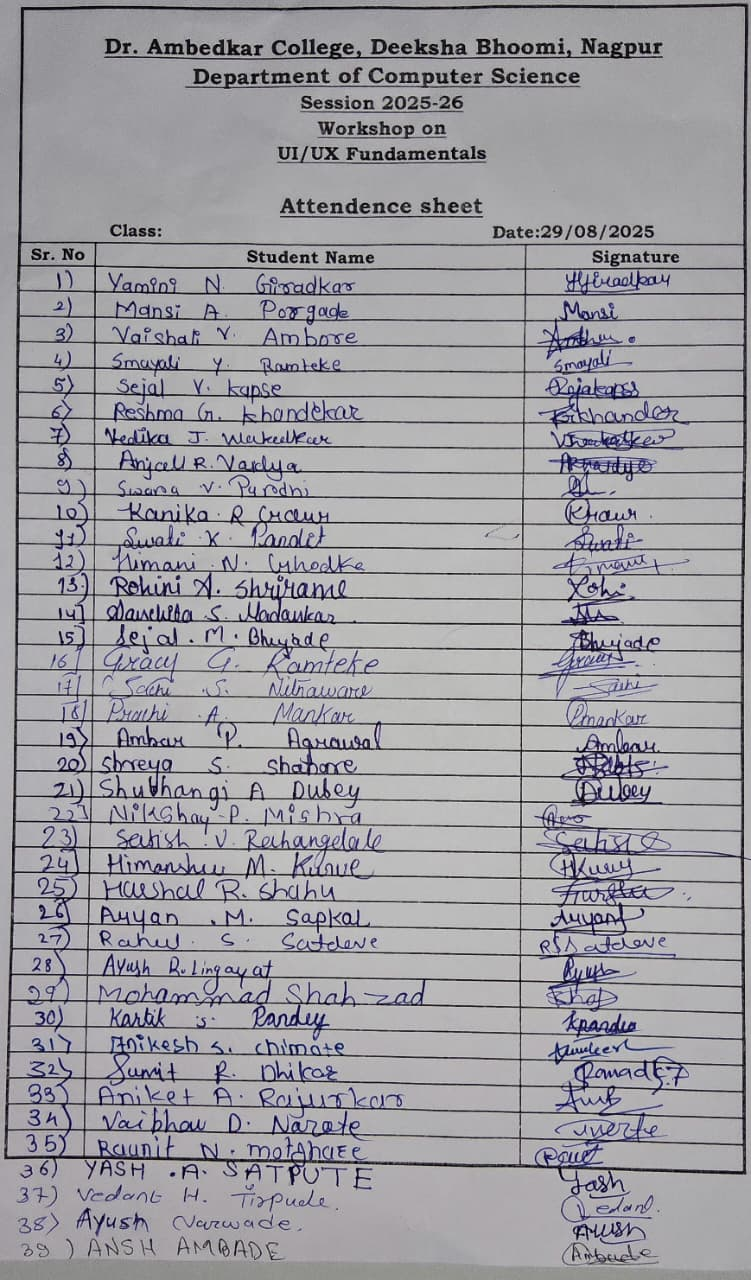 Dr. Ambedkar College, Deeksha Bhoomi, Nagpur
Department of Computer Science
Session 2025-26
Workshop on
UI/UX Fundamentals
Attendence sheet
Class: Date:29/08/2025
Sr. No Student Name Signature
1) Yamini N. Giradkar
2) Mansi A. Porgade Mansi
3) Vaishali V. Ambore
4) Smayali Y. Ramteke Smayali
5) Sejal V. Kapse
6) Reshma G. Khandekar
7) Vedika J. Wakudkar
8) Anjali R. Vaidya
9) Swara V. Paradhi
10) Kanika R Gaur KGaur.
11) Swati K. Pandet Swati
12) Himani N. Ghodke
13) Rohini A. Shrirame Rohi
14] S. Madankar
15] Sejal. M. Bhujade Bhujade
16] Gracy G. Ramteke Gracy
17] Sachi S. Nitnaware Sachi
18] Prachi A. Mankar Pmankar
19) Ambar P. Agrawal Ambar
20) Shreya S. Shahare
21) Shubhangi A Dubey Dubey
22] Nikshay P. Mishra
23) Satish V. Rechangelale Satish
24] Himanshu M. Kurve HKurve
25) Harshal R. Shahu
26) Aryan .M. Sapkal Aryan
27) Rahul S. Satdeve RSSatdeve
28) Ayush R. Lingayat Ayush
29) Mohammad Shahzad
30) Kartik S. Pandey
31) Anikesh S. Chimote
32) Sumit R. Dhikar
33) Aniket A. Rajurkar
34) Vaibhav D. Narete
35) Raunit N. Motghare
36) YASH .A. SATPUTE Yash
37) Vedant H. Tirpude. Vedant.
38) Ayush Narwade. Ayush
39) ANSH AMBADE Ambade